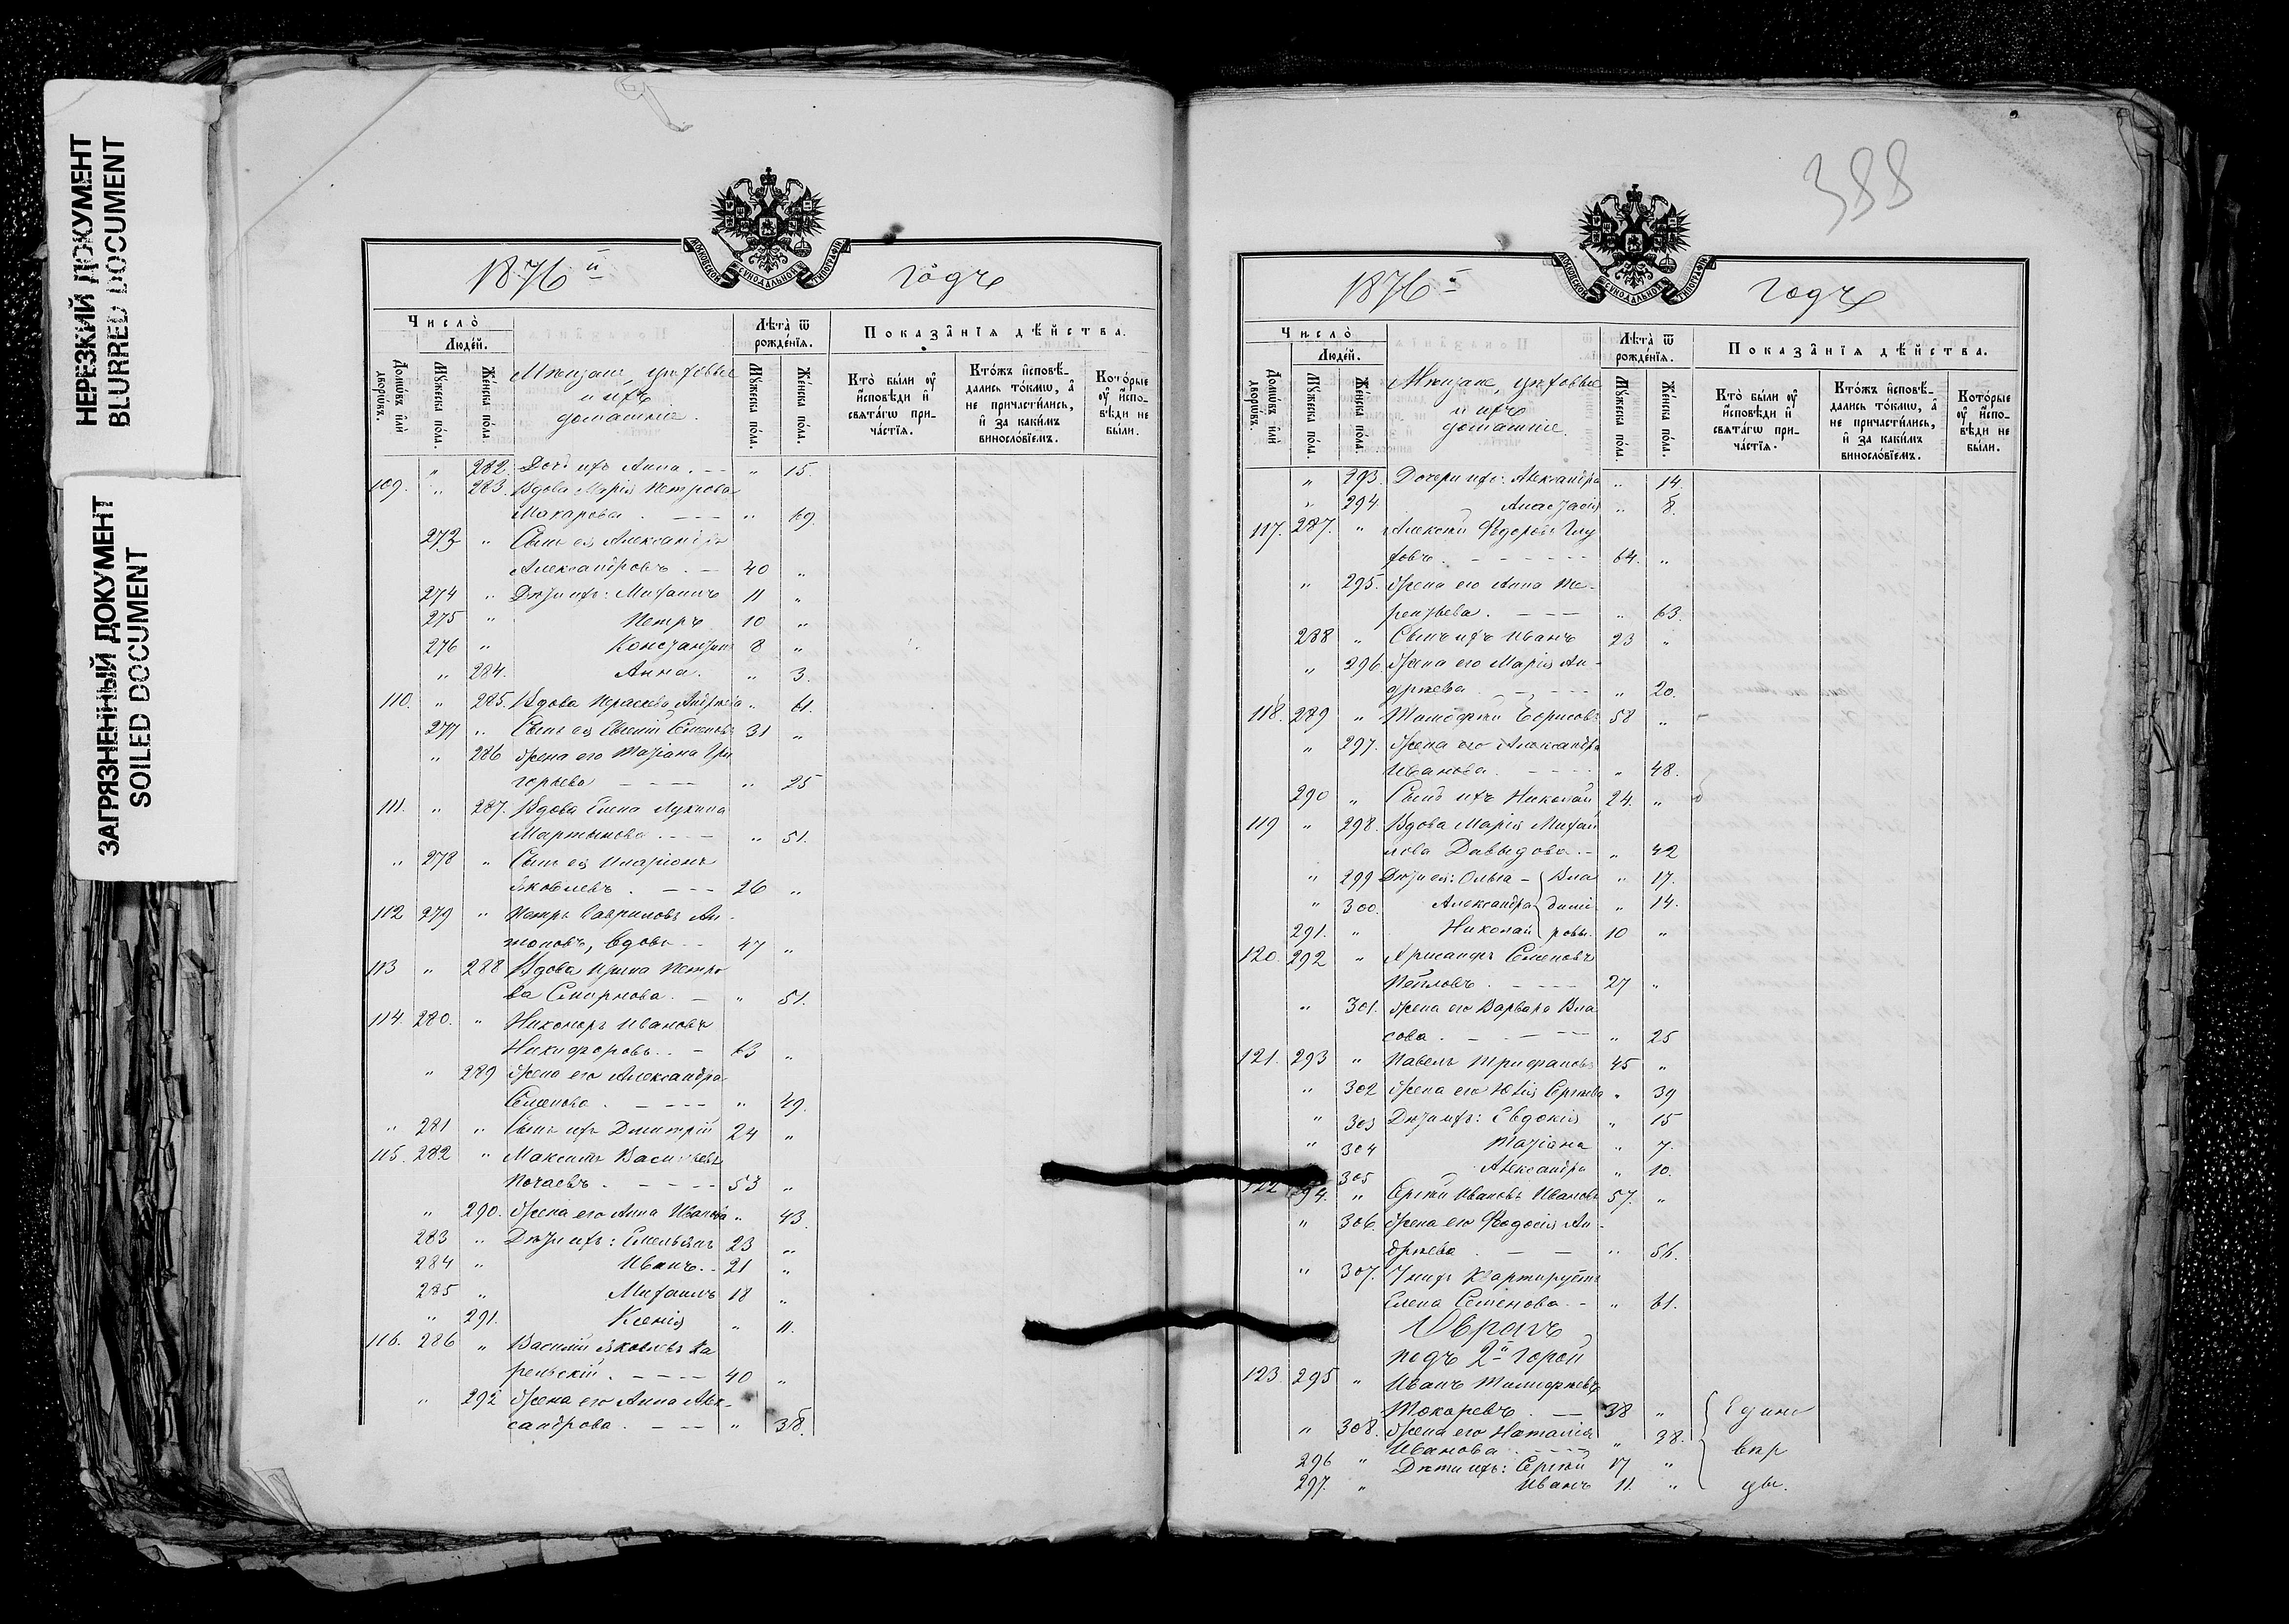 НЕРЕЗКИЙ ДОКУМЕНТ
BLURRED DOCUMENT
ЗАГРЯЗНЕННЫЙ ДОКУМЕНТ
SOILED DOCUMENT
МОСКОВСКОЙ СѴНОДАЛЬНОЙ ТИПОГРАФІИ
1876й годъ
Число̀
Людéй.
Домѡ́въ и҆лѝ дворѡ́въ.
Мꙋ́жеска по́ла.
Же́нска по́ла.
Мѣщане, цеховые
и ихъ
домашніе.
Лѣ́та ѿ рожде́нїѧ.
Мꙋ́жеска по́ла.
Же́нска по́ла.
Показа̑нїѧ дѣ́йства.
Кто̀ бы́ли ᲂу҆ и҆сповѣ́ди и҆ свѧта́гѡ прича́стїѧ.
Кто́жъ и҆сповѣ́дались то́кмѡ, а҆ не причасти́лись, и҆ за каки́мъ виносло́вїемъ.
Кото́рые ᲂу҆ и҆сповѣ́ди не бы́ли.
" 282. Дочь ихъ Анна. -- " 15.
109. " 283. Вдова Марія Петрова
Макарова . --- " 69.
273 " Сынъ ея Александръ
Александровъ . - 40 "
274 " Дѣти ихъ: Михаилъ 11 "
275 " Петръ 10 "
276 " Константинъ 8 "
" 284. Анна. " 3.
110. " 285. Вдова Параскева Андреева " 61.
277 " Сынъ ея Евсевій Семеновъ 31 "
" 286 Жена его Татіана Гри
горьева ---- " 25
111. " 287. Вдова Елена Лукина
Мартынова. --- " 51.
" 278 " Сынъ ея Иларіонъ
Яковлевъ . --- 26 "
112 279 " Петръ Гавриловъ Ан-
тоновъ, вдовъ -- 47 "
113 " 288 Вдова Ирина Петро
ва Смирнова. - " 51.
114. 280. " Никоноръ Ивановъ
Никифоровъ.. - 63 "
" 289 Жена его Александра
Семенова . ---- " 49.
" 281 " Сынъ ихъ Дмитрій 24 "
115. 282 " Максимъ Васильевъ
Почаевъ . ---- 53 "
" 290. Жена его Анна Иванова " 43.
283 " Дѣти ихъ: Емельянъ 23 "
284 " Иванъ. - 21 "
285 " Михаилъ 18 "
" 291. Ксенія " 11.
116. 286 " Василій Яковлевъ Ка
рельскій . ---- 40 "
" 292 Жена его Анна Алек-
сандрова . --- " 38.
388
МОСКОВСКОЙ СѴНОДАЛЬНОЙ ТИПОГРАФІИ
1876й годъ
Число̀
Людéй.
Домѡ́въ и҆лѝ дворѡ́въ.
Мꙋ́жеска по́ла.
Же́нска по́ла.
Мѣщане, цеховые
и ихъ
домашніе.
Лѣ́та ѿ рожде́нїѧ.
Мꙋ́жеска по́ла.
Же́нска по́ла.
Показа̑нїѧ дѣ́йства.
Кто̀ бы́ли ᲂу҆ и҆сповѣ́ди и҆ свѧта́гѡ прича́стїѧ.
Кто́жъ и҆сповѣ́дались то́кмѡ, а҆ не причасти́лись, и҆ за каки́мъ виносло́вїемъ.
Кото́рые ᲂу҆ и҆сповѣ́ди не бы́ли.
" 293. Дочери ихъ: Александра " 14.
" 294. Анастасія " 8.
117. 287. " Алексѣй Ѳедоровъ Глу
ховъ . ------ 64. "
" 295. Жена его Анна Те-
рентьева. --- " 63.
288 " Сынъ ихъ Иванъ 23 "
" 296. Жена его Марія Ан-
дреева. ---- " 20.
118. 289 " Тимоѳей Борисовъ 58 "
" 297. Жена его Александра
Иванова. ---- " 48.
290 " Сынъ ихъ Николай 24. "
119 " 298. Вдова Марія Михай
лова Давыдова. - " 42
" 299 Дѣти ея: Ольга - Вла " 17.
" 300. Александра димі " 14.
291. " Николай ровы. 10 "
120. 292 " Семеновъ
27 "
" 301. Жена его Варвара Вла
сова . ---- " 25
121. 293 " Павелъ Трифановъ 45 "
" 302 Жена его Юлія Сергѣева " 39
" 303 Дѣти ихъ: Евдокія " 15
" 304 Татіана " 7.
305 Александра " 10.
122 294. " Сергѣй Ивановъ Ивановъ 57. "
" 306. Жена его Ѳеодосія Ан-
дреева . - - " 56.
" 307. У нихъ квартируетъ
Елена Семенова. - " 61.
Оврагъ
подъ 2й горой
123. 295 " Иванъ Тимоѳеевъ
Токаревъ . -- 38 " Едино
" 308. Жена его Наталія
Иванова . ---- " 38. вѣр
296 " Дѣти ихъ: Сергѣй 17 "
297. " Иванъ 11. " цы.